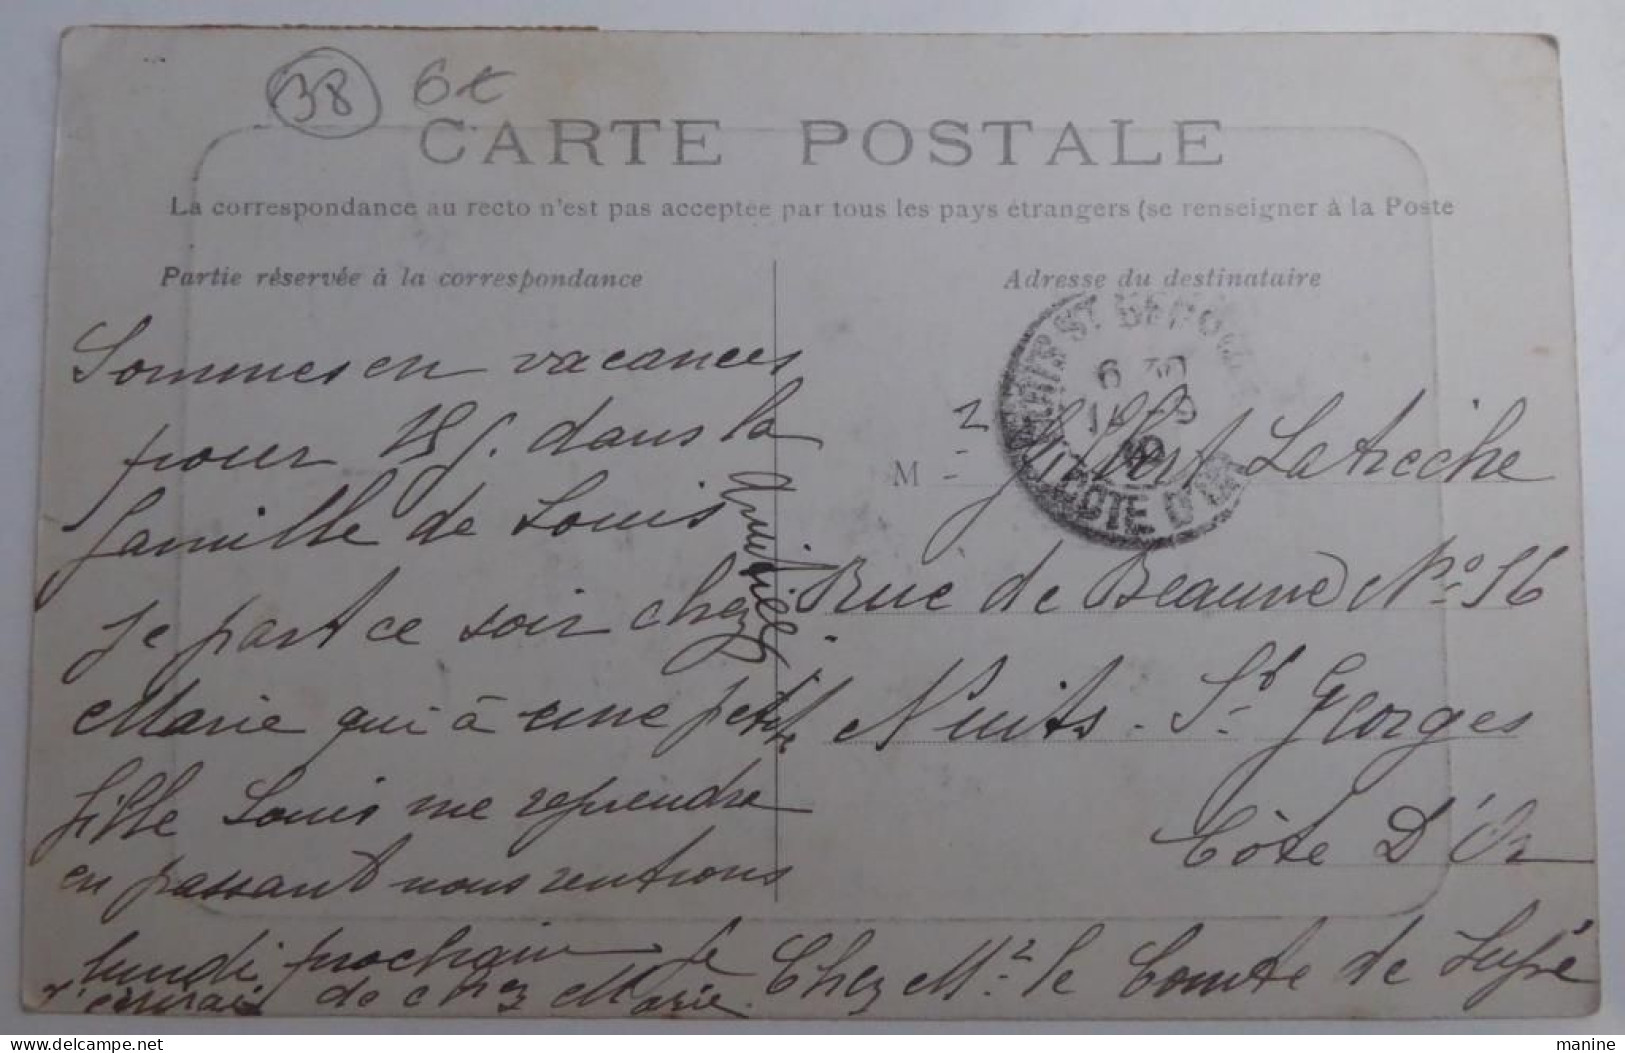 38 6€
CARTE POSTALE
La correspondance au recto n'est pas acceptée par tous les pays étrangers (se renseigner à la Poste
Partie réservée à la correspondance
Sommes en vacances
pour 15 j. dans la
famille de Louis
je part ce soir chez
Marie qui à une petite
fille Louis me reprendre
en passant nous rentrons
lundi prochain je
de chez Marie.
Adresse du destinataire
NUITS ST GEORGES
6 30
CÔTE D'OR
M - r Albert Latreche
Rue de Beaune No. 56
Nuits - St Georges
Côte D'Or
Chez Mr. le Comte de Lupé
manine
delcampe.net